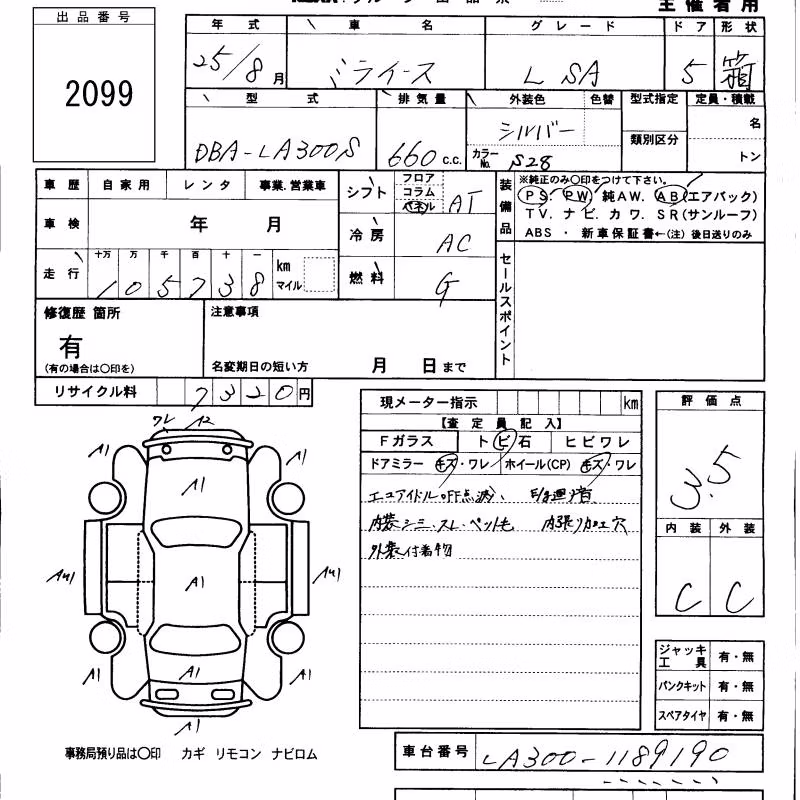 主催者用
出品番号
2099
年式 車名 グレード ドア 形状
25/8月 ミライース L SA 5 箱
型式 排気量 外装色 色替 型式指定 定員・積載
DBA-LA300S 660 c.c. シルバー 類別区分 名
カラーNo. S28 トン
車歴 自家用 レンタ 事業.営業車
車検 年 月
走行 十万 万 千 百 十 一
105738 km マイル
シフト フロア コラム パネル AT
冷房 AC
燃料 G
装備品 ※純正のみ〇印をつけて下さい。
PS. PW. 純AW. AB(エアバック)
TV. ナビ. カワ. SR(サンルーフ)
ABS ・ 新車保証書←(注) 後日送りのみ
セールスポイント
修復歴 箇所
有
(有の場合は〇印を)
注意事項
名変期日の短い方 月 日まで
リサイクル料 7320円
現メーター指示 km
【査定員記入】
Fガラス トビ石 ヒビワレ
ドアミラー キズ・ワレ ホイール(CP) キズ・ワレ
エコアイドルOFF点滅、
内装シミ、スレ、ペット毛 内張り加工穴
外装付着物
評価点
3.5
内装 外装
C C
ワレ A2
A1 A1
A1
AU1 A1 AU1
A1 A1 A1
A1
ジャッキ工具 有・無
パンクキット 有・無
スペアタイヤ 有・無
事務局預り品は〇印 カギ リモコン ナビロム
車台番号 LA300-1189190